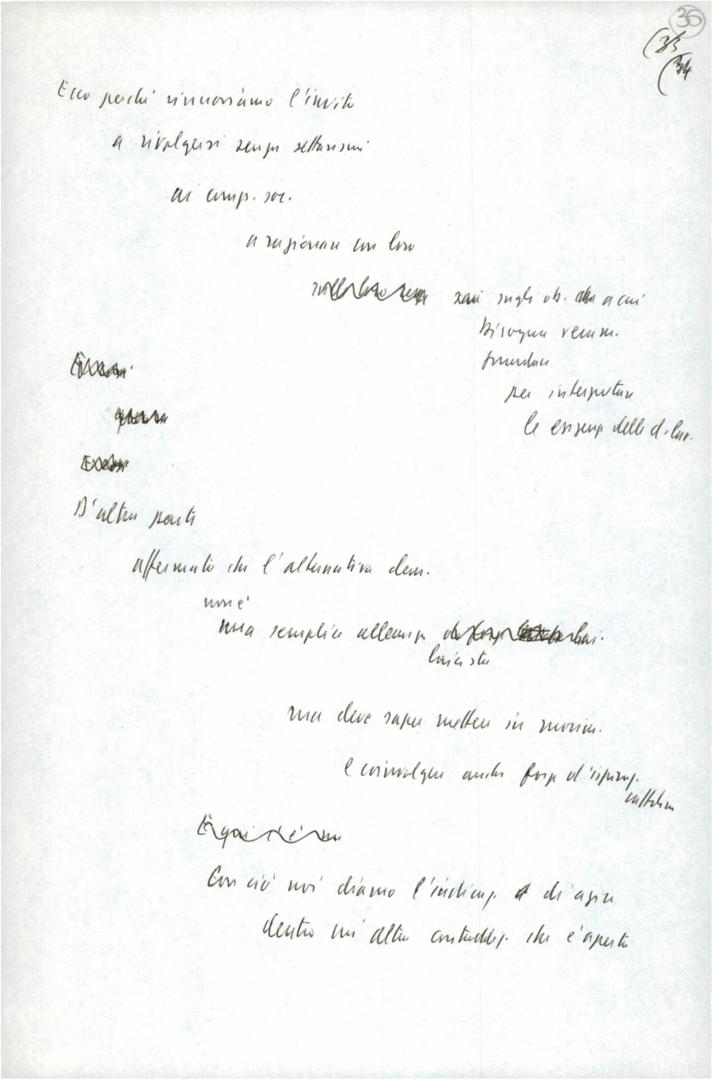 36
(33
(34
Ecco perché rinnoviamo l'invito
a rivolgersi senza settarismi
ai comp. soc.
a ragionare con loro
sugli ob. a cui
bisogna veram.
guardare
per interpretare
le esigenze delle d. lav.
D'altra parte
affermato che l'alternativa dem.
non è
una semplice alleanza
laicista
ma deve saper mettere in movim.
e coinvolgere anche forze d'ispiraz.
cattolica
Con ciò noi diamo l'indicaz. di agire
dentro un'altra contraddiz. che è aperta